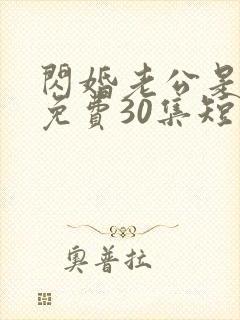 閃婚老公是
免費30集短
奧普拉